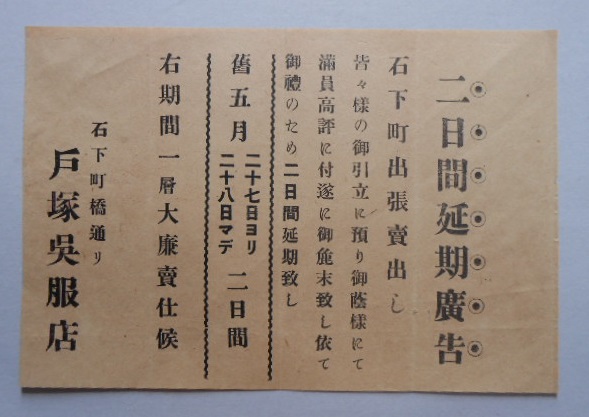 二日間延期廣告
石下町出張賣出し
皆々様の御引立に預り御蔭様にて
滿員高評に付遂に御麁末致し依て
御禮のため二日間延期致し
舊五月二十七日ヨリ二十八日マデ二日間
右期間一層大廉賣仕候
石下町橋通り
戶塚吳服店